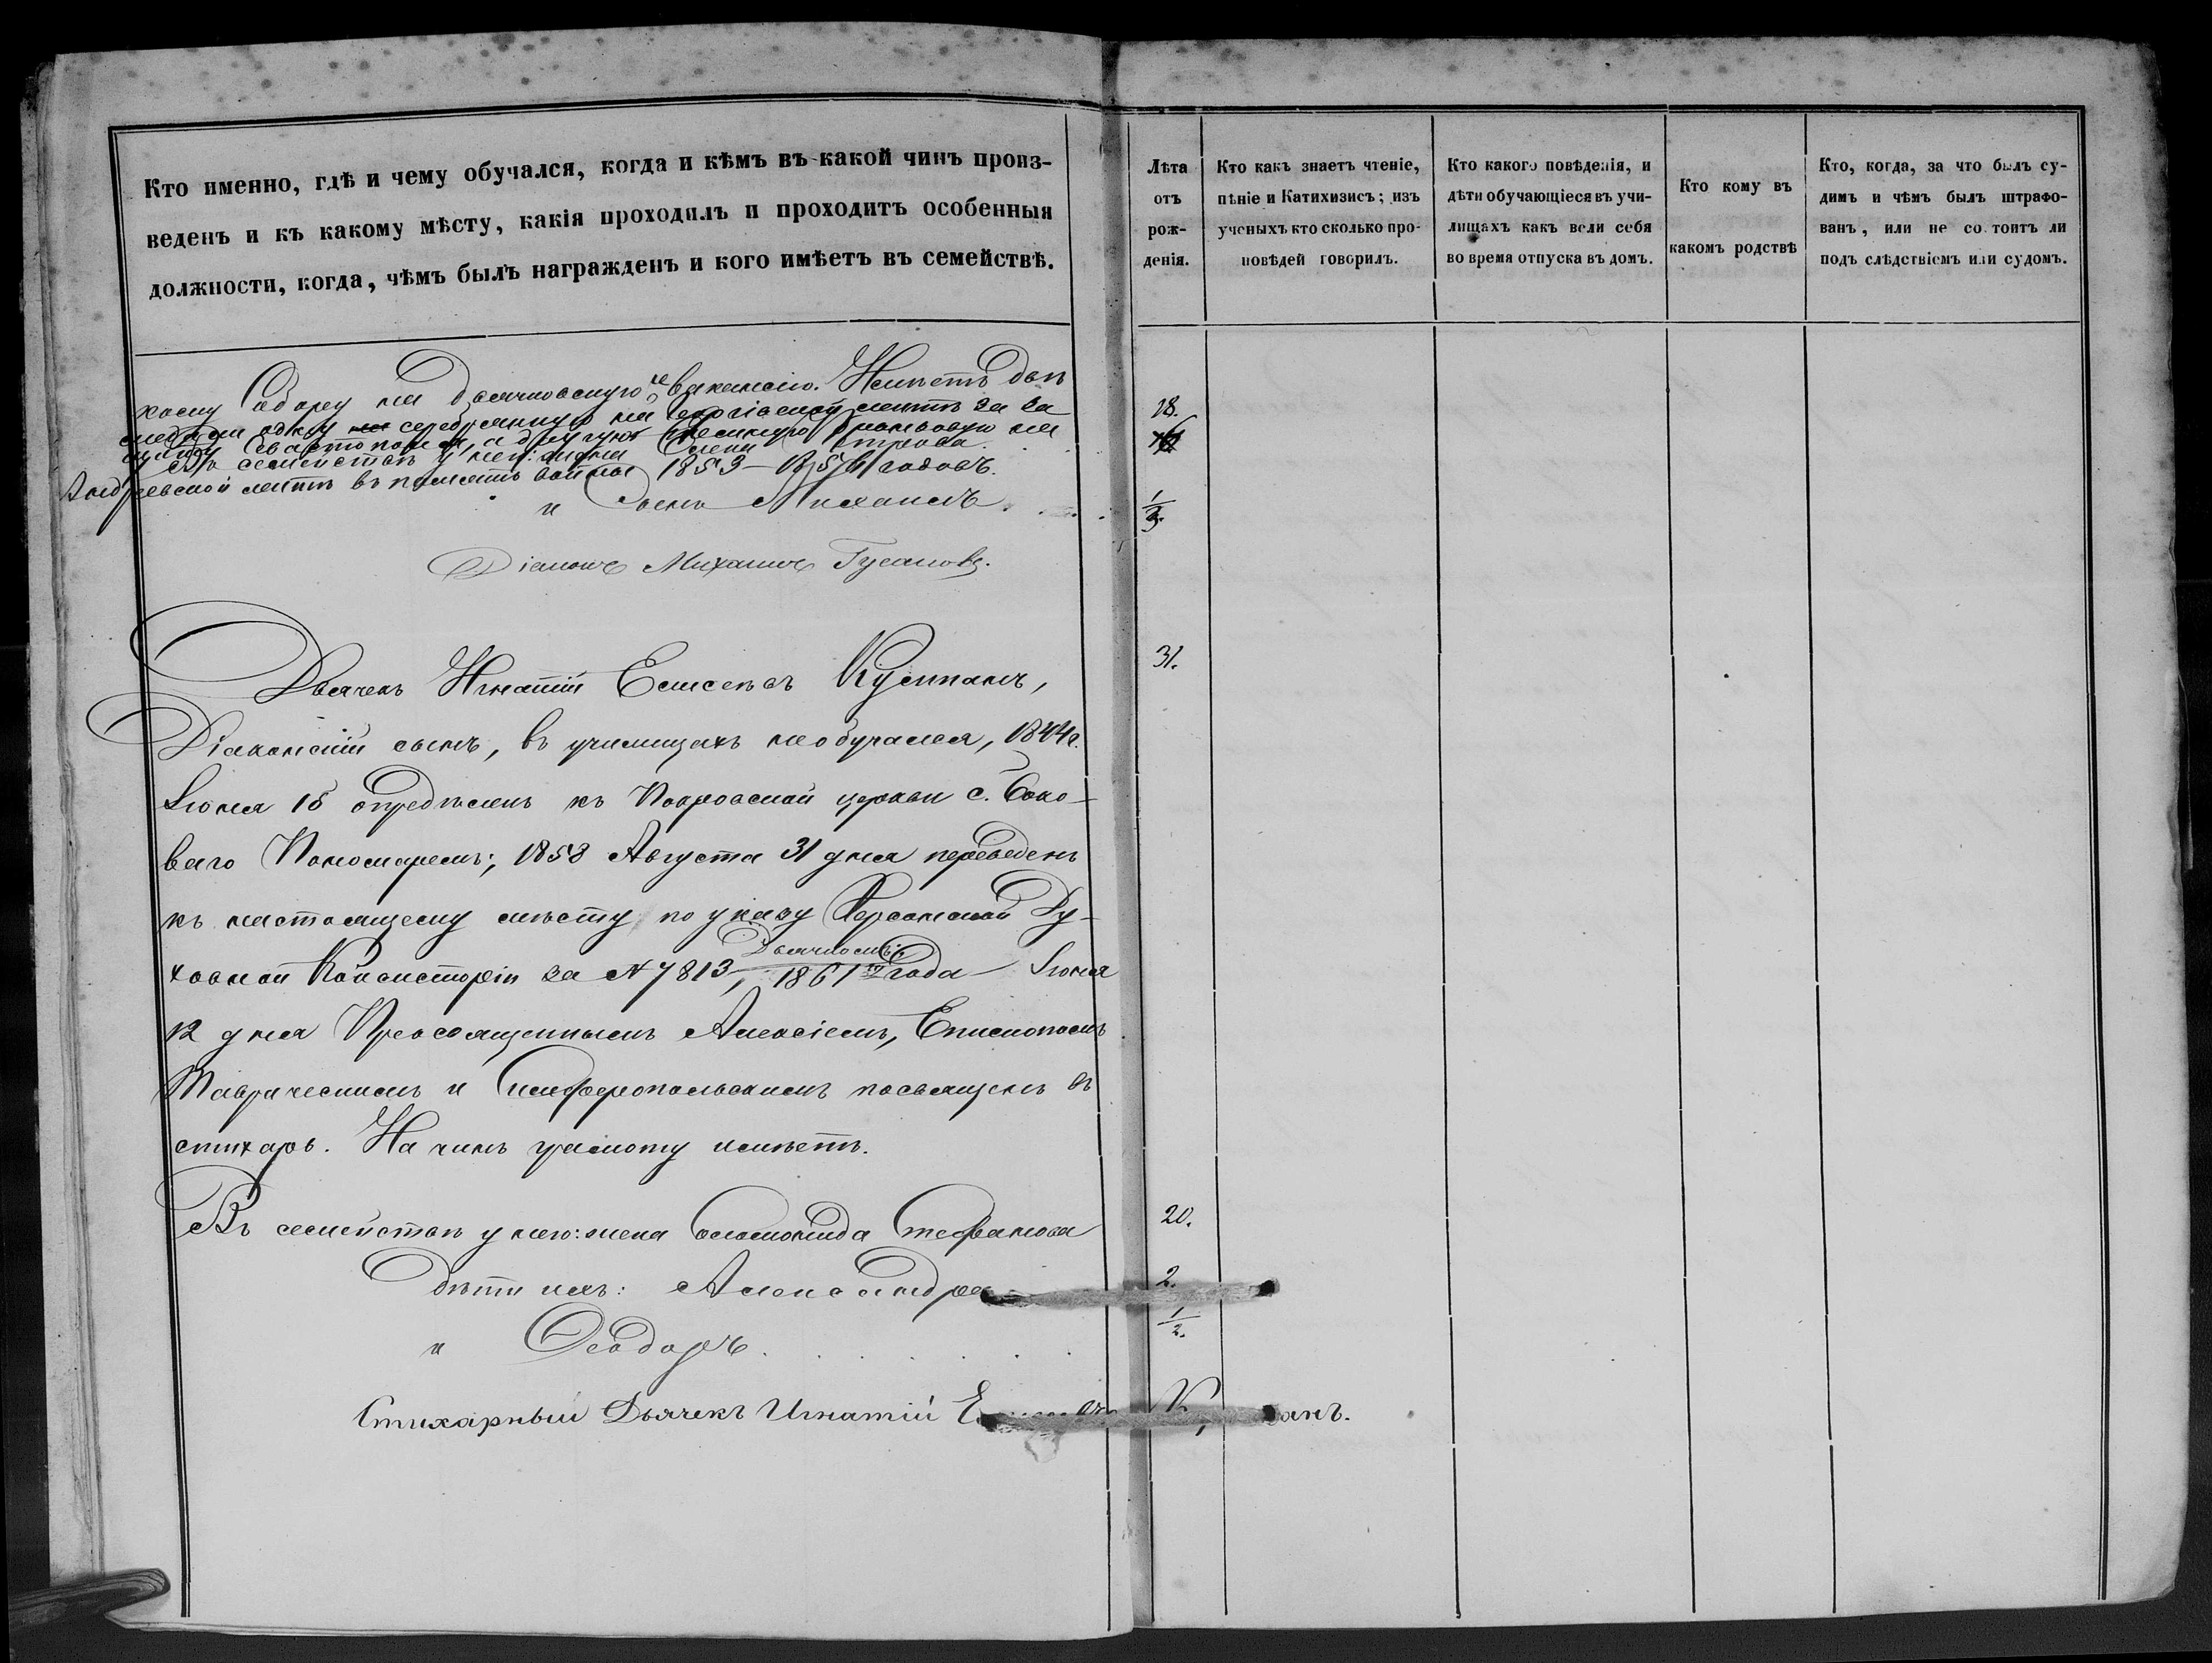 Кто именно, гдѣ и чему обучался, когда и кѣмъ въ какой чинъ произ-
веденъ и къ какому мѣсту, какія проходилъ и проходитъ особенныя
должности, когда, чѣмъ былъ награжденъ и кого имѣетъ въ семействѣ.
Лѣта
отъ
рож-
денія.
Кто какъ знаетъ чтеніе,
пѣніе и Катихизисъ; изъ
ученыхъ кто сколько про-
повѣдей говорилъ.
Кто какого повѣденія, и
дѣти обучающіеся въ учи-
лищахъ какъ вели себя
во время отпуска въ домъ.
Кто кому въ
какомъ родствѣ
Кто, когда, за что былъ су-
димъ и чѣмъ былъ штрафо-
ванъ, или не состоитъ ли
подъ слѣдствіемъ или судомъ.
Собору на Дьячковскую вакансію. Имѣетъ двѣ
медали одну серебрянную на Георгіевской лентѣ за за
щиту Севастополя, а другую бронзовую на
Въ семействѣ у него: жена Елена 18.
Андреевской лентѣ въ память войны 1853–1856 годовъ.
и сынъ Михаилъ. 1/3.
Діаконъ Михаилъ Гусаковъ.
Дьячекъ Игнатій Елисеевъ Кульпанъ, 31.
Діаконскій сынъ, въ училищахъ не обучался, 1844 г.
Іюня 15 опредѣленъ къ Покровской церкви с. Боко-
ваго Пономаремъ; 1858 Августа 31 дня переведенъ
къ настоящему мѣсту по указу Херсонской Ду-
Дьячкомъ;
ховной Консисторіи за N 7813, 1861го года Іюня
12 дня Преосвященнымъ Алексіемъ, Епископомъ
Таврическимъ и Симферопольскимъ посвященъ въ
стихарь. На чинъ грамоту имѣетъ.
Въ семействѣ у него: жена Стефанова 20.
дѣти ихъ: Александра 2.
и Ѳеодоръ. 1/2.
Стихарный Дьячекъ Игнатій